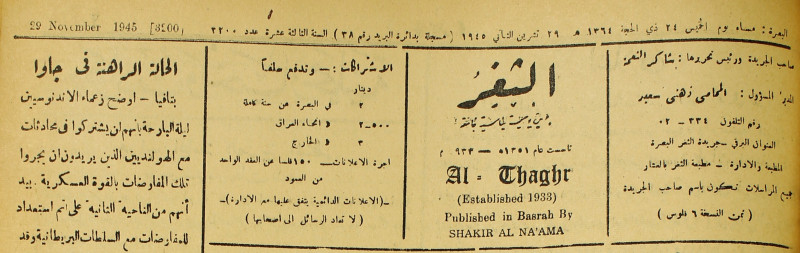 البصرة: مساء يوم الخميس ٢٤ ذي الحجة ١٣٦٤ هـ ٢٩ تشرين الثاني ١٩٤٥ ( مسجلة بدائرة البريد رقم ٣٨ ) السنة الثالثة عشرة عدد ٣٢٠٠
29 November 1945 [3200)
صاحب الجريدة ورئيس تحريرها : شاكر النعمة
المدير المسؤول : المحامي ذهني سعيد
رقم التلفون ٣٣٤ - ٠٢
العنوان البرقي - جريدة الثغر البصرة
المطبعة والادارة - مطبعة الثغر بالعشار
جميع المراسلات تكون باسم صاحب الجريدة
( ثمن النسخة ٦ فلوس )
الثغر
تأسست عام ١٣٥١ هـ - ٩٣٣ م
Al - Thaghr
(Established 1933)
Published in Basrah By
SHAKIR AL NA'AMA
الاشتراكات : - وتدفع سلفاً
دينار
٢ في البصرة عن سنة كاملة
٢-٥٠٠ انحاء العراق
٣ الخارج
اجرة الاعلانات - ١٥٠ فلسا عن العقد الواحد
من العمود
-(الاعلانات الدائمية يتفق عليها مع الادارة)-
( لا تعاد الرسائل الى اصحابها )
الحالة الراهنة في جاوا
بتافيا - اوضح زعماء الاندونوسيين
ليلة البارحة بأنهم لن يشتركوا في محادثات
مع الهولنديين الذين يريدون ان يجروا
تلك المفاوضات بالقوة العسكرية . بيد
أنهم من الناحية الثانية على اتم استعداد
للمفاوضات مع السلطات البريطانية وقد